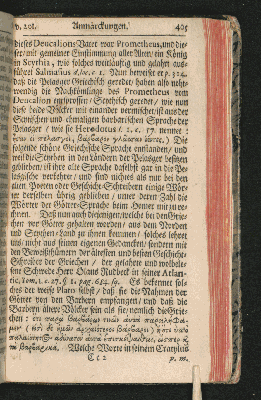 p. 201. Anmärckungen. 405
dieses Deucalions Vater war Prometheus, und die-
ser / mit gemeiner Einstimmung aller Alten / ein König
in Scythia, wie solches weitläuftig und gelahrt aus-
führet Salmasius d. loc. c. 1. Nun beweiset er p. 314.
daß die Pelasger Griechisch geredet / haben also noht-
wendig die Nachkömlinge des Prometheus von
Deucalion entsprossen / Scythisch geredet / wie nun
diese beide Völcker mit einander vermischet / ist aus der
Scythischen und ehmaligen barbarischen Sprache der
Pelasger / wie sie Herodotus l. 1. c. 57. nennet:
Die
folgende schöne Griechische Sprache entstanden / und
weil die Scythen in den Ländern der Pelasger besitzen
geblieben / ist ihre alte Sprache daselbst gar in die Pe-
lasgische verkehret / und sind nichts als nur bei den
alten Poeten oder Geschicht-Schreibern einige Wör-
ter derselben übrig geblieben / unter deren Zahl die
Wörter der Götter-Sprache beim Homer mit zu rech-
nen. Daß nun auch diejenigen / welche bei den Grie-
chen vor Götter gehalten worden / aus dem Norden
und Scythen-Land zu ihnen kommen / solches lehret
uns / nicht aus seinen eigenen Gedancken / sondern mit
den Beweisthümern der ältesten und besten Geschicht-
Schreiber der Griechen / der gelahrte und wolbele-
sene Schwede Herr Olaus Rudbeck in seiner Atlan-
tic, tom. 1. c. 27. § 1. pag. 684. sq. Es bekennet sol-
ches der weise Plato selbst / daß sie die Nahmen der
Götter von den Barbern empfangen / und daß die
Barbern älter Völcker sein als sie / nemlich die Grie-
chen:
Welche Worte in seinem Cratylus
Cc 2 p. m.